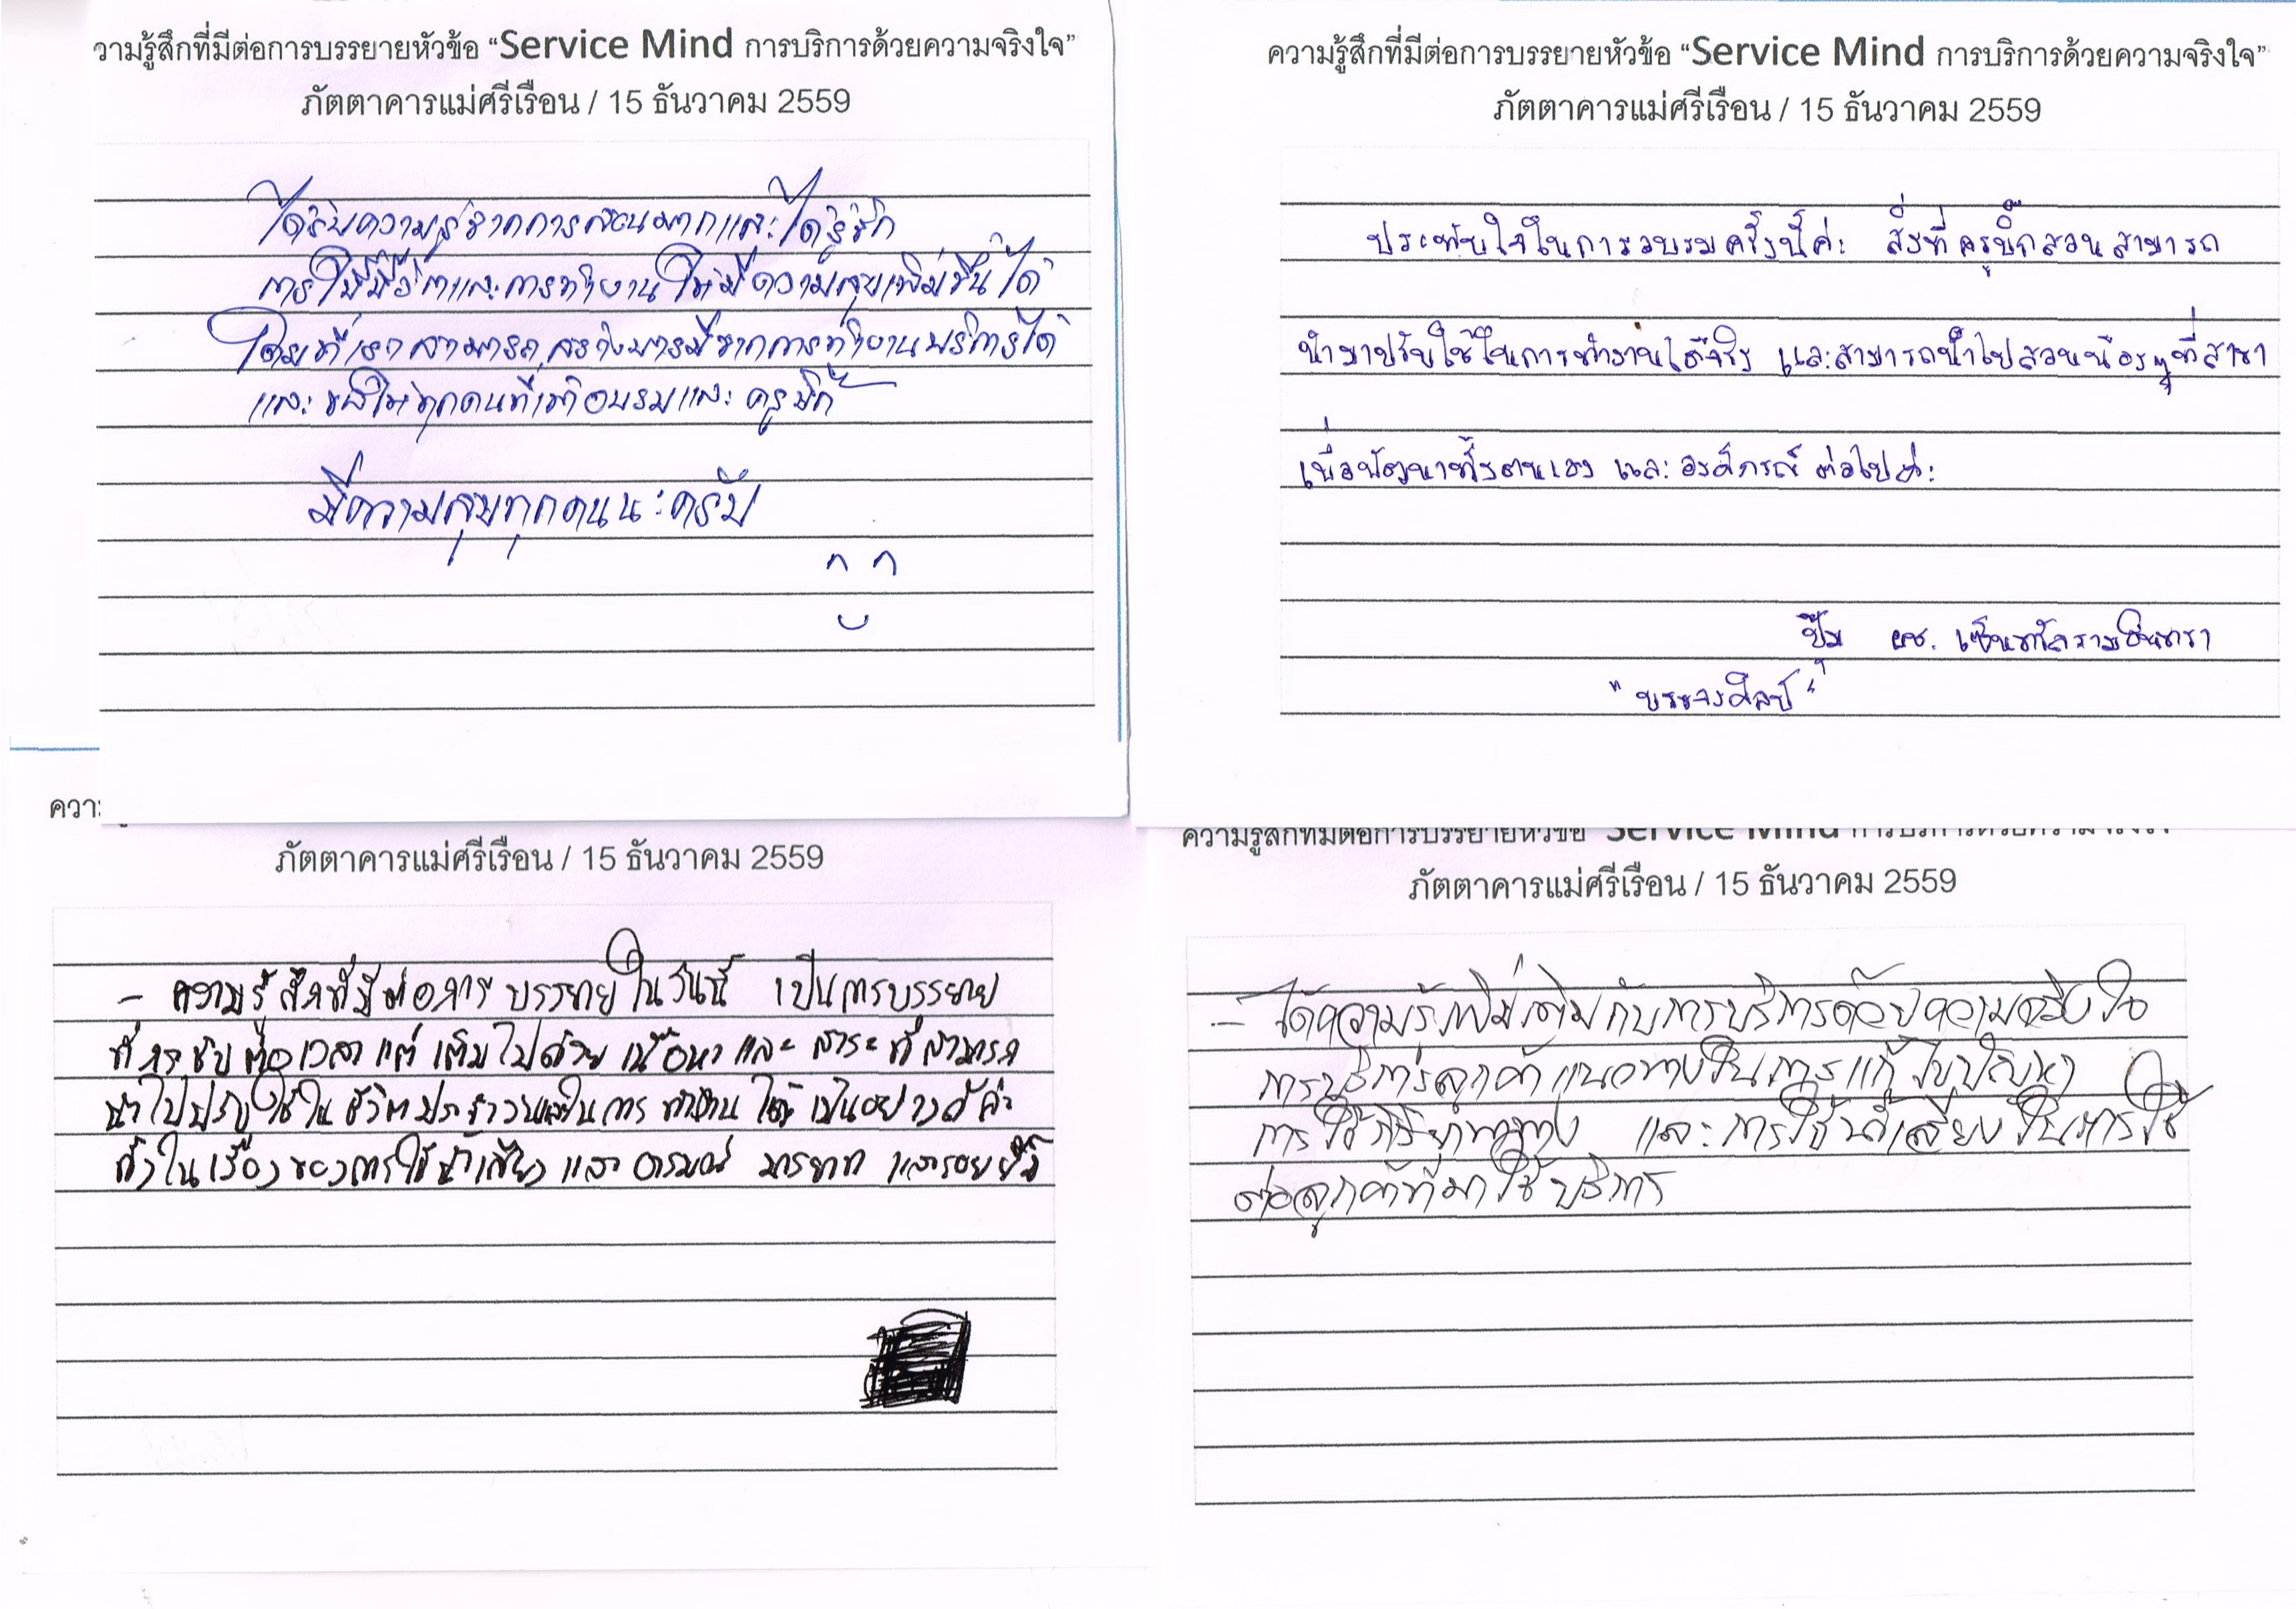 วามรู้สึกที่มีต่อการบรรยายหัวข้อ “Service Mind การบริการด้วยความจริงใจ”
ภัตตาคารแม่ศรีเรือน / 15 ธันวาคม 2559
ได้รับความรู้จากการสอนมากและได้รู้จัก
การใช้ชีวิตและการทำงานให้มีความสุขเพิ่มขึ้นได้
โดยที่เราสามารถสร้างบารมีจากการทำงานบริการได้
และขอให้ทุกคนที่เข้าอบรมและครูบิ๊ก
มีความสุขทุกคนนะครับ
ความรู้สึกที่มีต่อการบรรยายหัวข้อ “Service Mind การบริการด้วยความจริงใจ”
ภัตตาคารแม่ศรีเรือน / 15 ธันวาคม 2559
ประทับใจในการอบรมครั้งนี้ค่ะ สิ่งที่ครูบิ๊กสอนสามารถ
นำมาปรับใช้ในการทำงานได้จริง และสามารถนำไปสอนน้องๆที่สาขา
เพื่อพัฒนาทั้งตนเอง และ องค์กรณ์ ต่อไปค่ะ
ปิ๊ม ผช. เซ็นทรัลรามอินทรา
"บรรจงศิลป์"
ควา
ภัตตาคารแม่ศรีเรือน / 15 ธันวาคม 2559
- ความรู้สึกที่มีต่อการบรรยายในวันนี้ เป็นการบรรยาย
ที่กระชับต่อเวลาแต่เต็มไปด้วยเนื้อหาและสาระที่สามารถ
นำไปปรับใช้ในชีวิตประจำวันและในการทำงานได้เป็นอย่างดีค่ะ
ทั้งในเรื่องของการใช้น้ำเสียง และอารมณ์ มารยาท และรอยยิ้ม
ความรู้สึกที่มีต่อการบรรยายหัวข้อ “Service Mind การบริการด้วยความจริงใจ
ภัตตาคารแม่ศรีเรือน / 15 ธันวาคม 2559
- ได้ความรู้เพิ่มเติมกับการบริการด้วยความจริงใจ
การบริการลูกค้าแนวทางในการแก้ไขปัญหา
การใช้กริยาท่าทาง และการใช้น้ำเสียงในการใช้
ต่อลูกค้าที่มาใช้บริการ